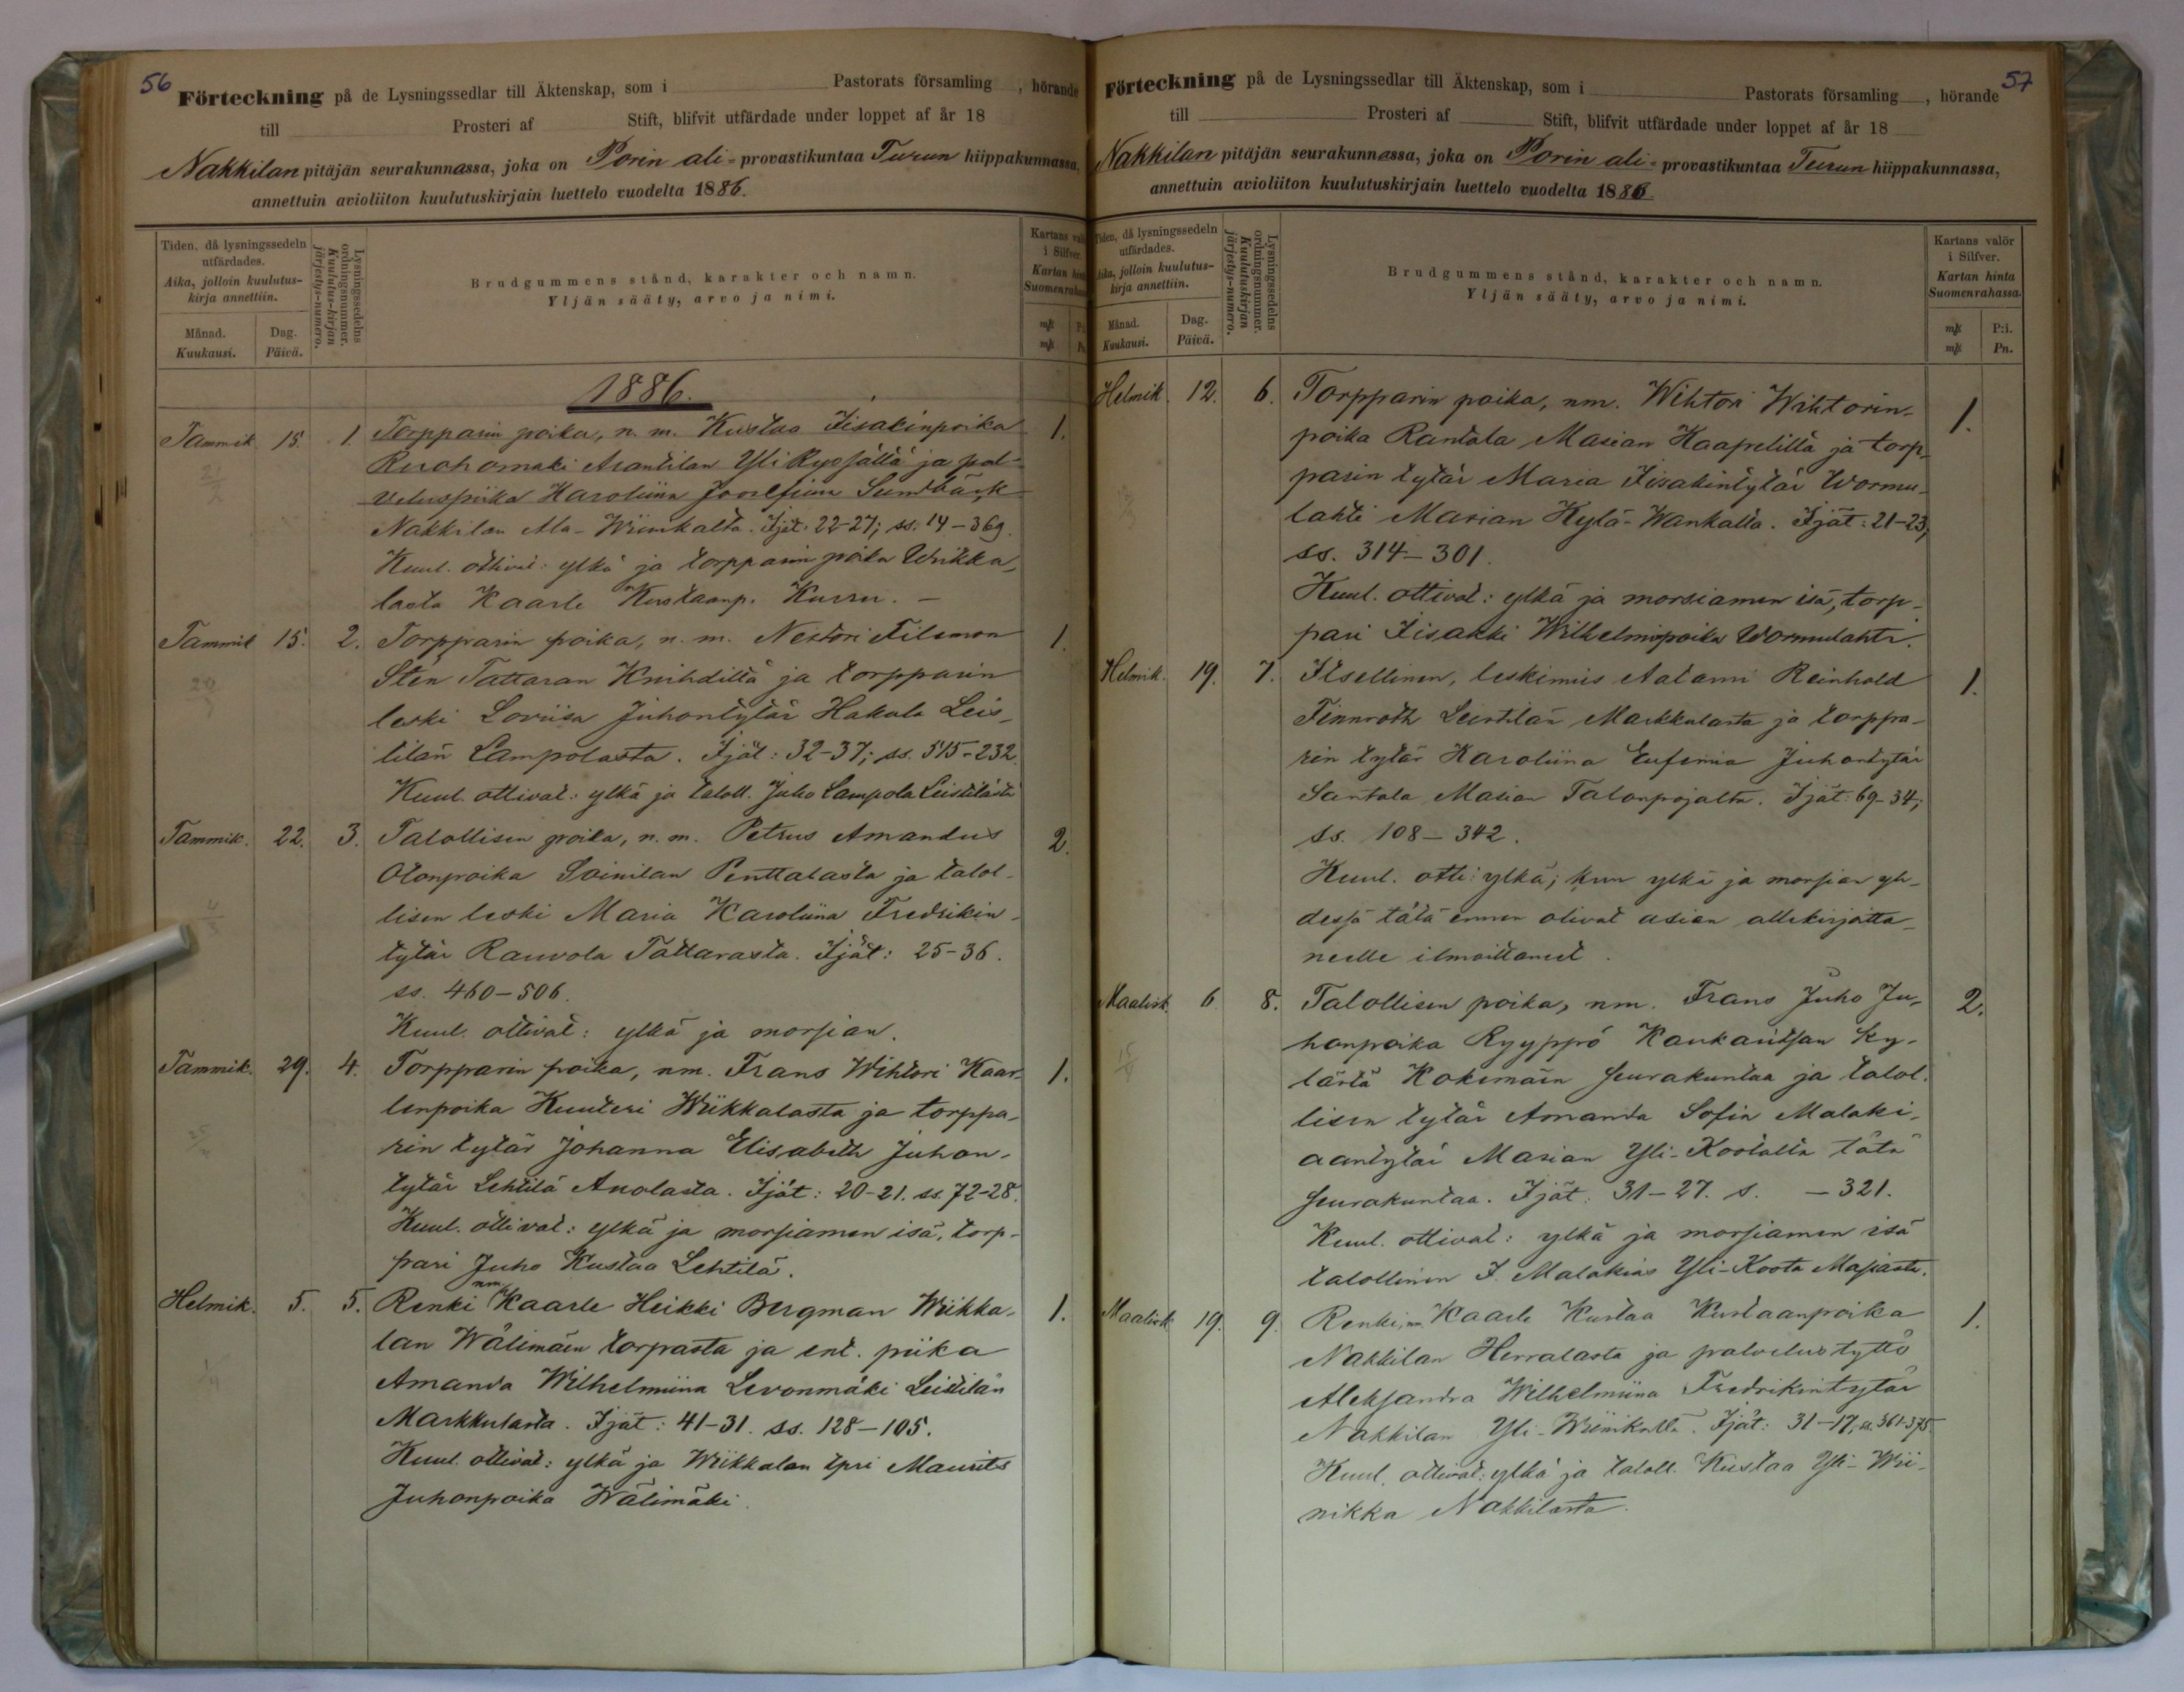 56
Förteckning på de Lysningssedlar till Äktenskap, som i Pastorats församling , hörande
till Prosteri af Stift, blifvit utfärdade under loppet af år 18
Nakkilan pitäjän seurakunnassa, joka on Porin ali-provastikuntaa Turun hiippakunnassa,
annettuin avioliiton kuulutuskirjain luettelo vuodelta 1886.
Tiden, då lysningssedeln utfärdades.
Aika, jolloin kuulutus-kirja annettiin.
Månad. Kuukausi.
Dag. Päivä.
Lysningssedelns ordningsnummer.
Kuulutus-kirjan järjestys-numero.
Brudgummens stånd, karakter och namn.
Yljän sääty, arvo ja nimi.
Kartans valör i Silfver.
Kartan hinta Suomenrahassa
1886.
Tammik. 15 1. Torpparin poika, n. m. Kustaa Iisakinpoika 1.
Ruohomäki Arantilan Yli Ryssältä ja pal-
veluspiika Karoliina Joosefiina Sundbäck
Nakkilan Ala-Wiinikalta. Ijät: 22-27; ss. 14-369.
Kuul. ottivat: ylkä ja torpparin poika Wiikka-
lasta Kaarle Kustaanp. Kuusu. –
Tammik 15. 2. Torpparin poika, n. m. Nestori Filemon 1.
Sten Tattaran Knihdiltä ja torpparin
leski Loviisa Juhontytär Hakula Leis-
tilän Lampolasta. Ijät: 32-37; ss. 515-232.
Kuul. ottivat: ylkä ja taloll. Juho Lampola Leistilästä
Tammik. 22. 3. Talollisen poika, n. m. Petrus Amandus 2.
Otonpoika Soinilan Penttalasta ja talol-
lisen leski Maria Karoliina Fredrikin-
tytär Rauvola Tattarasta. Ijät: 25-36.
ss. 460-506.
Kuul. ottivat: ylkä ja morsian.
Tammik. 29. 4. Torpparin poika, nm. Frans Wihtori Kaar- 1.
lenpoika Kuuteri Wiikkalasta ja torppa-
rin tytär Johanna Elisabeth Juhon-
tytär Lehtilä Anolasta. Ijät: 20-21. ss. 72-28.
Kuul. ottivat: ylkä ja morsiamen isä, torp-
pari Juho Kustaa Lehtilä.
Helmik. 5. 5. Renki nm Kaarle Heikki Bergman Wiikka- 1.
lan Wälimäen torpasta ja ent. piika
Amanda Wilhelmiina Levonmäki Leistilän
Markkulasta. Ijät: 41-31. ss. 128-105.
Kuul. ottivat: ylkä ja Wiikkalan tpri Maurits
Juhonpoika Wälimäki.
57
Förteckning på de Lysningssedlar till Äktenskap, som i Pastorats församling , hörande
till Prosteri af Stift, blifvit utfärdade under loppet af år 18
Nakkilan pitäjän seurakunnassa, joka on Porin ali-provastikuntaa Turun hiippakunnassa,
annettuin avioliiton kuulutuskirjain luettelo vuodelta 1886.
Tiden, då lysningssedeln utfärdades.
Aika, jolloin kuulutus-kirja annettiin.
Månad. Kuukausi.
Dag. Päivä.
Lysningssedelns ordningsnummer.
Kuulutuskirjan järjestys-numero.
Brudgummens stånd, karakter och namn.
Yljän sääty, arvo ja nimi.
Kartans valör i Silfver.
Kartan hinta Suomenrahassa.
P:i. Pn.
Helmik. 12. 6. Torpparin poika, nm. Wihtori Wihtorin- 1.
poika Rantala Masian Kaapelilta ja torp-
parin tytär Maria Iisakintytär Wormu-
lahti Masian Kylä-Wankalta. Ijät: 21-23;
ss. 314-301.
Kuul. ottivat: ylkä ja morsiamen isä, torp-
pari Iisakki Wilhelminpoika Wormulahti.
Helmik. 19. 7. Itsellinen, leskimies Aatami Reinhold 1.
Finnroth Leistilän Markkulasta ja torppa-
rin tytär Karoliina Eufemia Juhontytär
Santala Masian Talonpojalta. Ijät: 69-34;
ss. 108-342.
Kuul. otti: ylkä; kun ylkä ja morsian yh-
dessä tätä ennen olivat asian allekirjoitta-
neelle ilmoittaneet.
Maalisk. 6 8. Talollisen poika, nm. Frans Juho Ju- 2.
honpoika Ryyppö Kaukaritsan ky-
lästä Kokemäen seurakuntaa ja talol-
lisen tytär Amanda Sofia Malaki-
aantytär Masian Yli-Kootalta tätä
seurakuntaa. Ijät: 31-27. s. -321.
Kuul. ottivat: ylkä ja morsiamen isä
talollinen I. Malakias Yli-Koota Masiasta.
Maalisk 19. 9. Renki, nm. Kaarle Kustaa Kustaanpoika 1.
Nakkilan Herralasta ja palvelustyttö
Aleksandra Wilhelmiina Fredrikintytär
Nakkilan Yli-Wiinikalta. Ijät: 31-17; ss. 361-375.
Kuul. ottivat: ylkä ja taloll. Kustaa Yli-Wii-
nikka Nakkilasta.